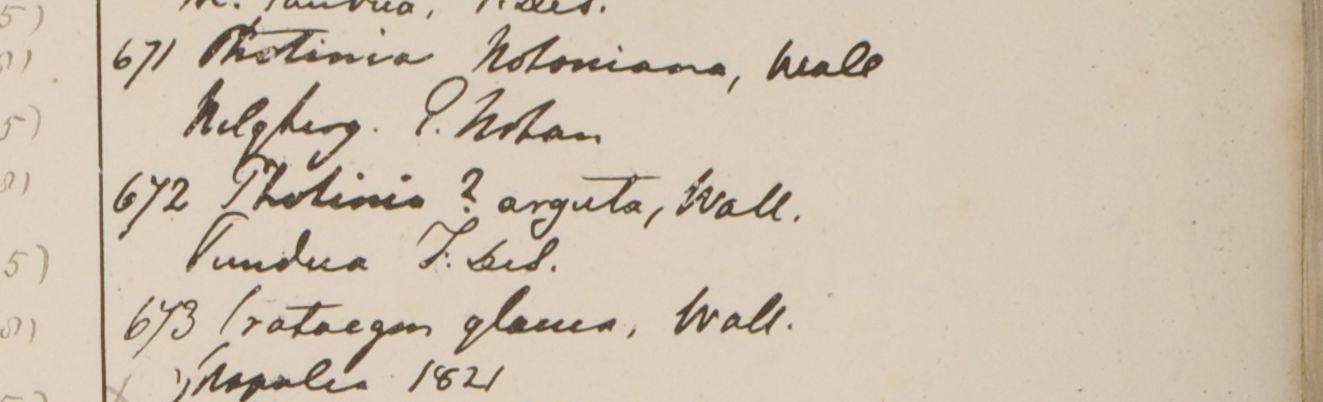 5)
671 Photinia Notoniana, Wall
81)
Nilgherry. P. Noton
5)
672 Photinia ? arguta, Wall.
81)
Pundua F. DeS.
5)
673 Crataegus glauca, Wall.
81)
Napalia 1821